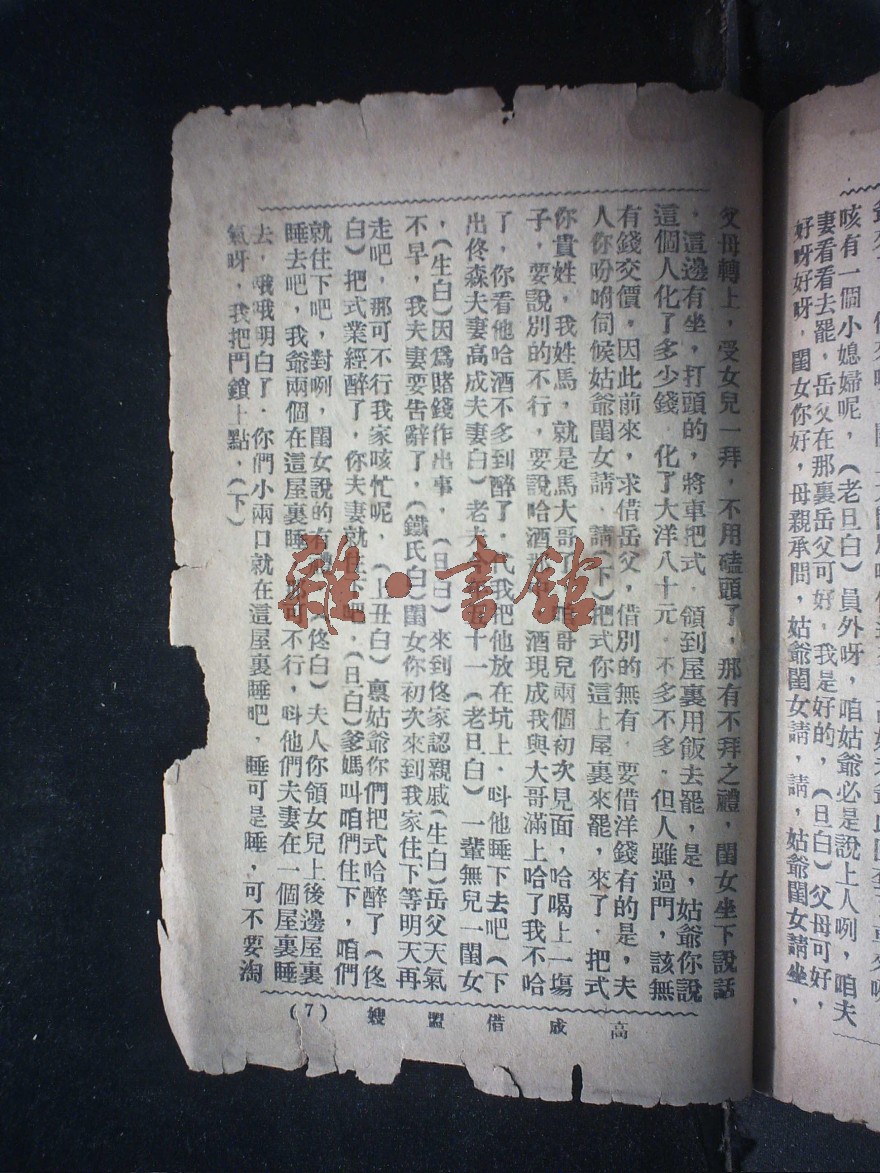 咳有一個小媳婦呢，（老旦白）員外呀，咱姑爺必是說上人咧，咱夫
妻看看去罷，岳父在那裏岳父可好，我是好的，（旦白）父母可好，
好呀好呀，閨女你好，母親承問，姑爺閨女請，請，姑爺閨女請坐，
父母轉上，受女兒一拜，不用磕頭了，那有不拜之禮，閨女坐下說話
，這邊有坐，打頭的，將車把式，領到屋裏用飯去罷，是，姑爺你說
這個人化了多少錢，化了大洋八十元，不多不多，但人雖過門，該無
有錢交價，因此前來，求借岳父，借別的無有，要借洋錢有的是，夫
人你吩咐伺候姑爺閨女請，請（下）把式你這上屋裏來罷，來了，把式
你貴姓，我姓馬，就是馬大哥了，咱哥兒兩個初次見面，哈喝上一塲
子，要說別的不行，要說哈酒 酒現成我與大哥滿上哈了我不哈
了，你看他哈酒不多到醉了，代我把他放在坑上，呌他睡下去吧（下
出佟森夫妻高成夫妻白）老夫 十一（老旦白）一輩無兒一閨女
，（生白）因爲賭錢作出事，（旦白）來到佟家認親戚（生白）岳父天氣
不早，我夫妻要告辭了，（鐵氏白）閨女你初次來到我家住下等明天再
走吧，那可不行我家咳忙呢，（丑白）禀姑爺你們把式哈醉了（佟
白）把式業經醉了，你夫妻就住下吧，（旦白）爹媽叫咱們住下，咱們
就住下吧，對咧，閨女說的有 （佟白）夫人你領女兒上後邊屋裏
睡去吧，我爺兩個在這屋裏睡 可不行，呌他們夫妻在一個屋裏睡
去，哦哦明白了，你們小兩口就在這屋裏睡吧，睡可是睡，可不要淘
氣呀，我把門鎖上點，（下）
高成借盟嫂 （7）
雜·書館